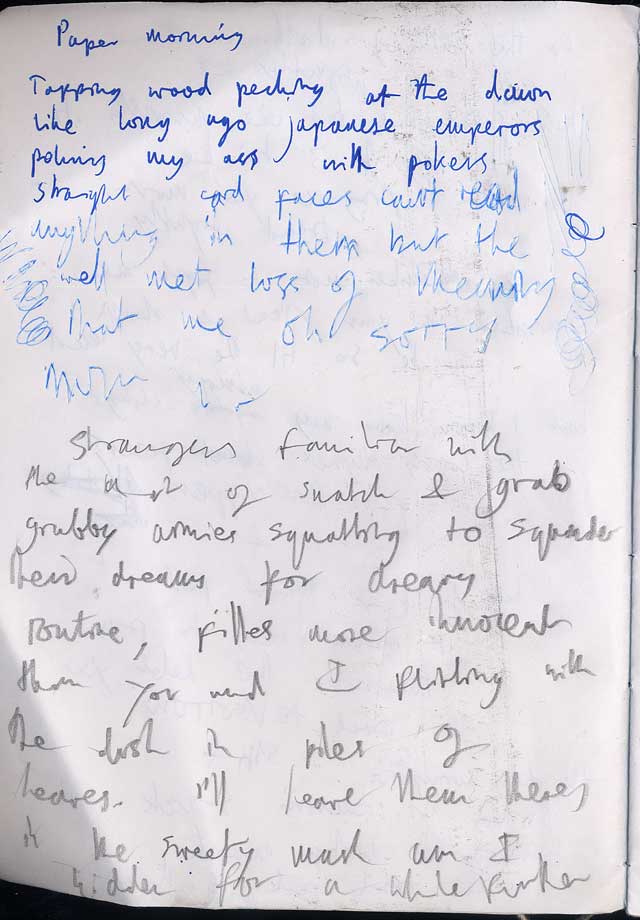 Paper morning
Tapping wood pecking at the dawn
like long ago japanese emperors
poking my ass with pokers
straight card faces can't read
anything in them but the
well met logs of
that me oh sorry
strangers familiar with
the art of snatch & grab
grubby armies squatting to squander
their dreams for dreary
routine, fifties more innocent
than you and I flirting with
the dust in piles of
leaves. I'll leave them theres
in the sweety mush am I
hidden for a while further